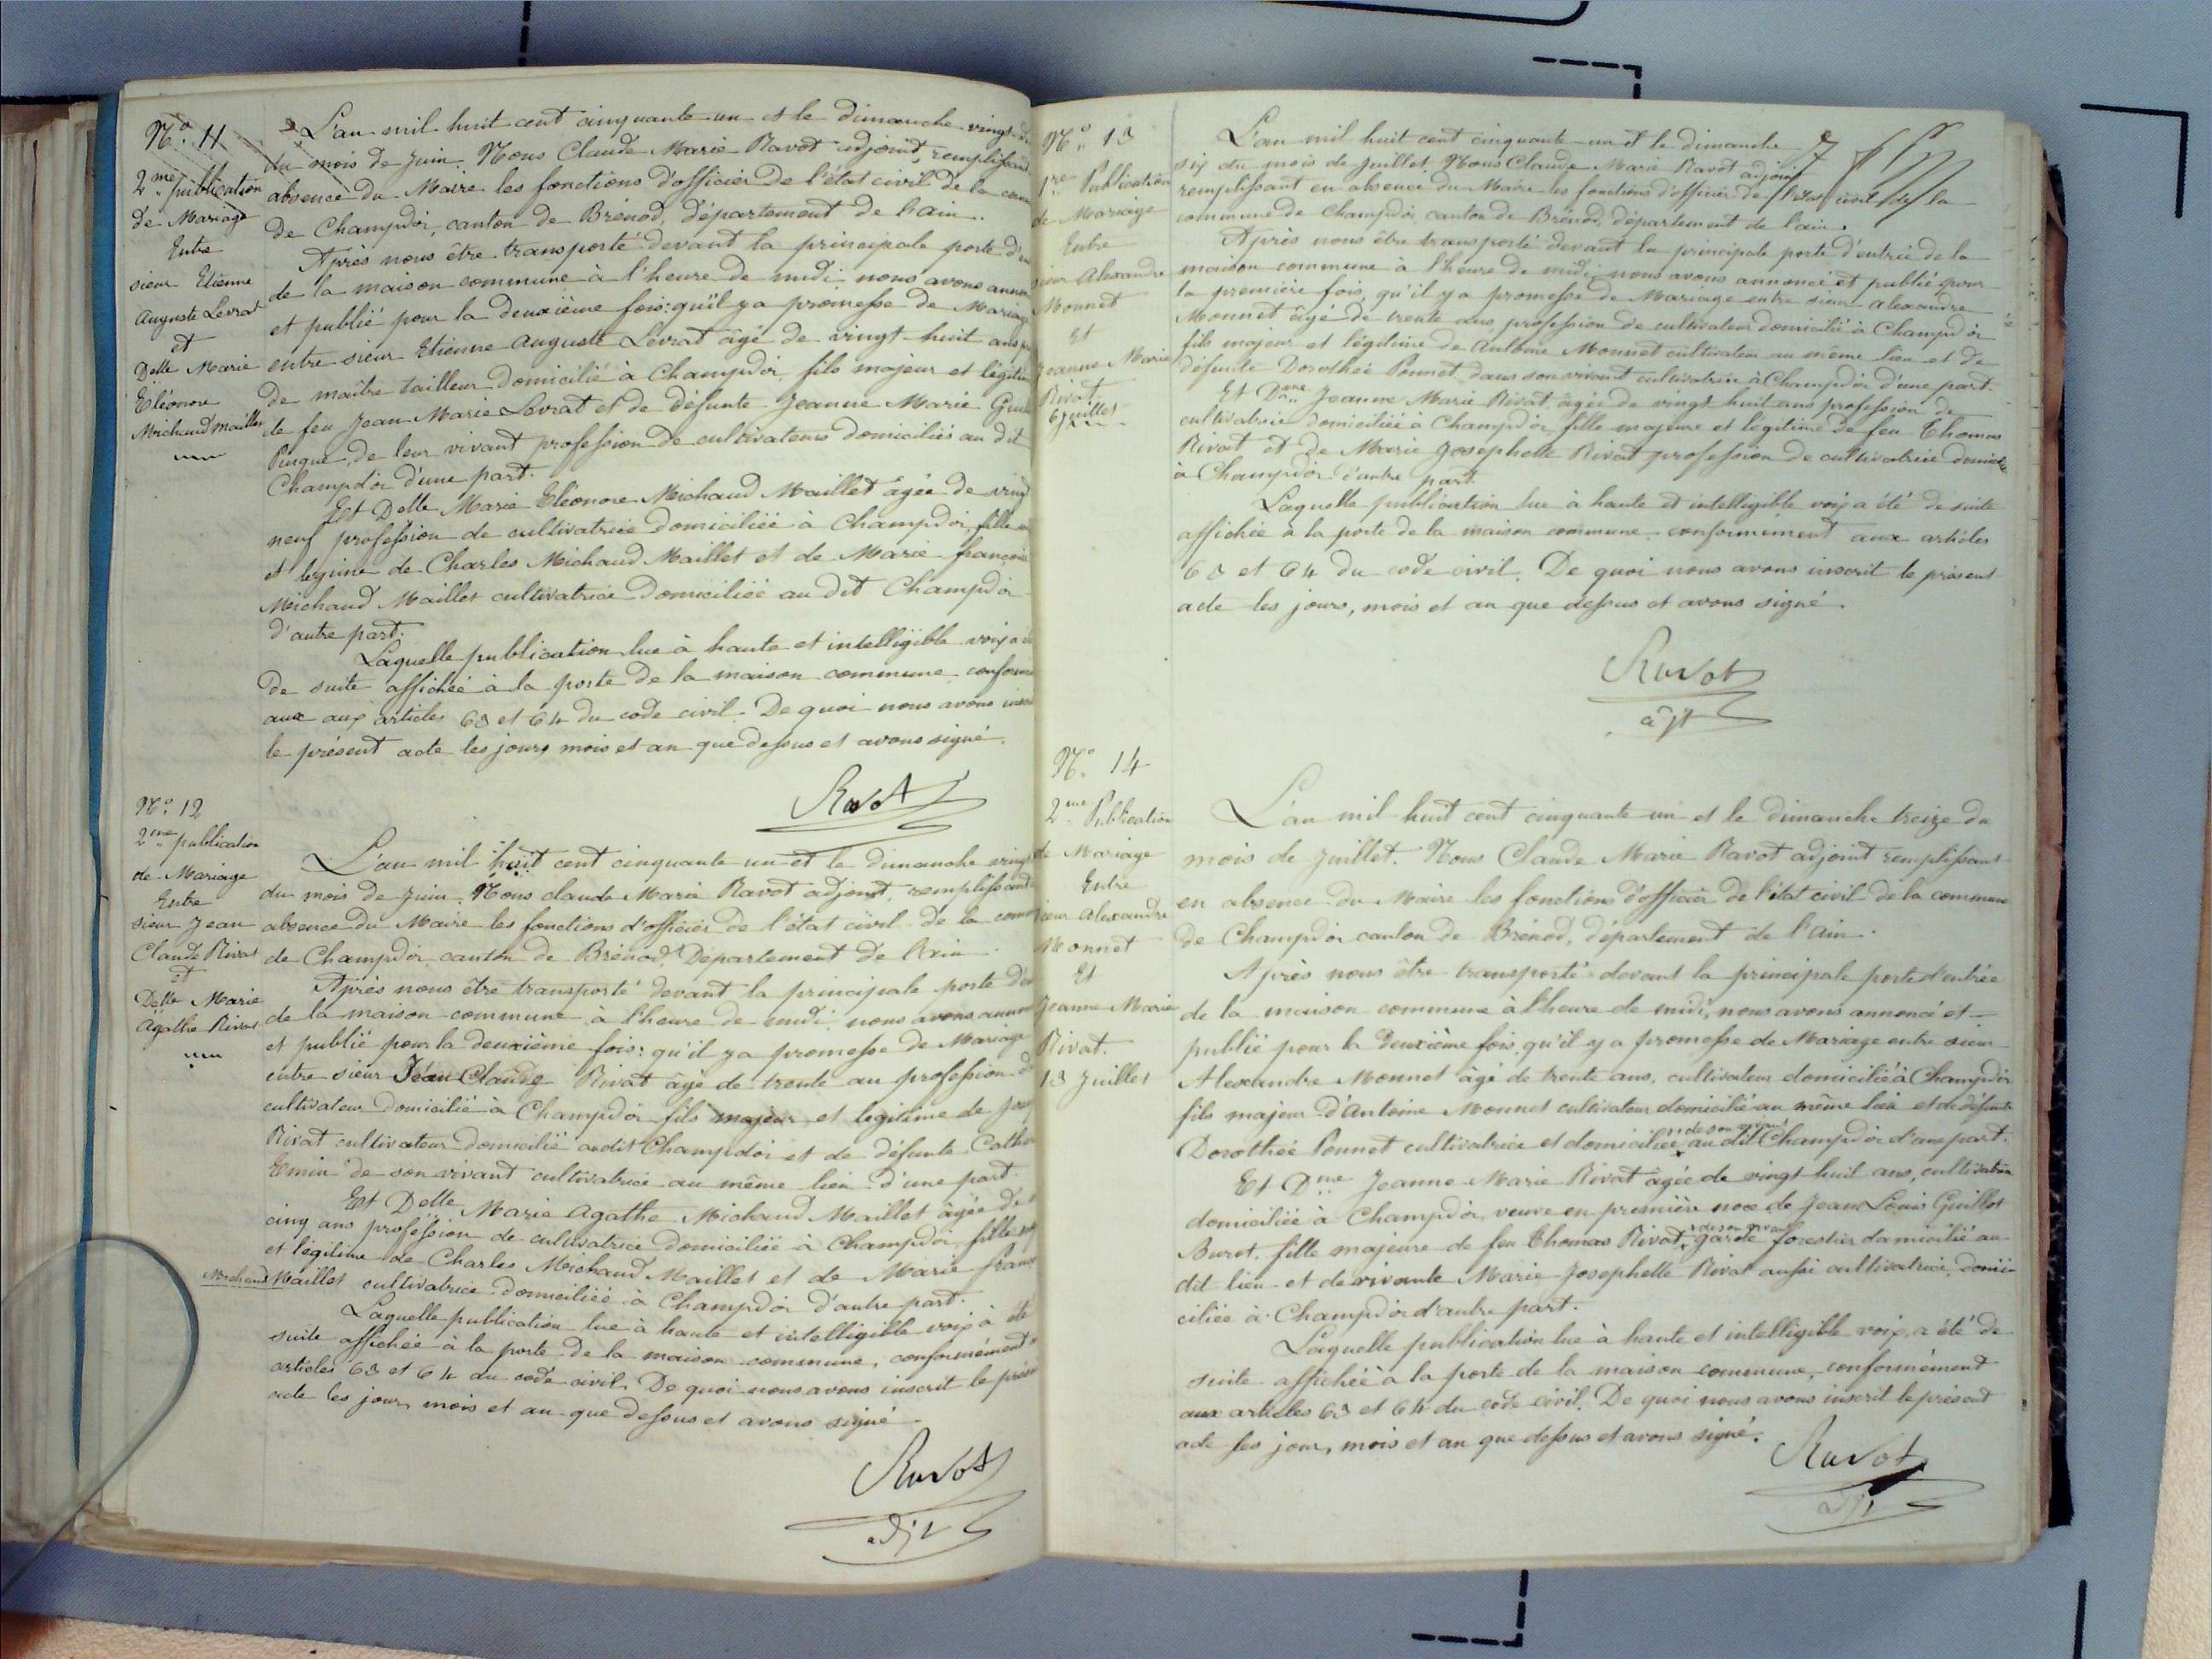 N° 11
2me publication
de Mariage
Entre
sieur Etienne
Auguste Levrat
et
Delle Marie
Eléonore
Michaud Maillet
L'an mil huit cent cinquante un et le dimanche vingt
du mois de Juin. Nous Claude Marie Ravot adjoint, remplissant
absence du Maire les fonctions d'officier de l'état civil de la com
de Champdor, canton de Brénod, département de l'ain.
Après nous être transporté devant la principale porte d'en
de la maison commune à l'heure de midi, nous avons annon
et publié pour la deuxième fois: qu'il y a promesse de Mariage
entre sieur Etienne Auguste Levrat âgé de vingt huit ans p
de maître tailleur domicilié à Champdor, fils majeur et légitim
de feu Jean Marie Levrat et de défunte Jeanne Marie
de leur vivant profession de cultivateurs domiciliés au dit
Champdor d'une part.
Et Delle Marie Eléonore Michaud Maillet âgée de vingt
neuf profession de cultivatrice domiciliée à Champdor, fille
et legime de Charles Michaud Maillet et de Marie françoise
Michaud Maillet cultivatrice domiciliée au dit Champdor
d'autre part.
Laquelle publication lue à haute et intelligible voix a
de suite affichée à la porte de la maison commune conform
aux aux articles 63 et 64 du code civil. De quoi nous avons inscr
le présent acte les jours, mois et an que dessus et avons signé.
Ravot
N° 12
2me publication
de Mariage
Entre
sieur Jean
Claude Rivat
et
Delle Marie
Agathe Rivat
L'an mil huit cent cinquante un et le dimanche vingt
du mois de Juin. Nous claude Marie Ravot adjoint, remplissant
absence du Maire les fonctions d'officier de l'état civil de la com
de Champdor canton de Brénod, Departement de l'ain
Après nous être transporté devant la principale porte d'en
de la maison commune à l'heure de midi nous avons annon
et publié pour la deuxième fois: qu'il y a promesse de Mariage
entre sieur Jean Claude Rivat âgé de trente an profession de
cultivateur domicilié à Champdor fils majeur et legitime de
Rivat cultivateur domicilié audit Champdor et de défunte Cathe
Emin de son vivant cultivatrice au même lieu d'une part.
Et Delle Marie Agathe Michaud Maillet âgée de
cinq ans profession de cultivatrice domiciliée à Champdor, fille
et légitime de Charles Michaud Maillet et de Marie franç
Michaud Maillet cultivatrice domiciliée à Champdor d'autre part.
Laquelle publication lue à haute et intelligible voix à été
suite affichée à la porte de la maison commune, conformément
articles 63 et 64 du code civil. De quoi nous avons inscrit le prése
acte les jours, mois et an que dessus et avons signé
Ravot
adjt
N° 13
1re Publication
de Mariage
Entre
sieur Alexandre
Monnet
Et
Jeanne Marie
Rivat.
6 Juillet
L'an mil huit cent cinquante un et le dimanche
six du mois de Juillet. Nous Claude Marie Ravot adjoint
remplissant en absence du Maire les fonctions d'officier de l'état civil de la
commune de Champdor canton de Brénod, département de l'ain.
Après nous être transporté devant la principale porte d'entrée de la
maison commune à l'heure de midi, nous avons annoncé et publié pour
la première fois, qu'il y a promesse de Mariage entre sieur Alexandre
Monnet âgé de trente ans, profession de cultivateur domicilié à Champdor
fils majeur et légitime de Antoine Monnet cultivateur au même lieu et de
défunte Dorothée Ponnet dans son vivant cultivatrice à Champdor d'une part.
Et Dme Jeanne Marie Rivat âgée de vingt huit ans profession de
cultivatrice domiciliée à Champdor fille majeure et légitime de feu Thomas
Rivat et de Marie Josephette Rivat profession de cultivatrice domicile
à Champdor d'autre part.
Laquelle publication lue à haute et intelligible voix a été de suite
affichée à la porte de la maison commune conformement aux articles
63 et 64 du code civil. De quoi nous avons inscrit le présent
acte les jours, mois et an que dessus et avons signé.
Ravot
adjt
N° 14
2me Publication
de Mariage
Entre
sieur Alexandre
Monnet
Et
Jeanne Marie
Rivat.
13 Juillet
L'an mil huit cent cinquante un et le dimanche treize du
mois de Juillet. Nous Claude Marie Ravot adjoint remplissant
en absence du Maire les fonctions d'officier de l'état civil de la commune
de Champdor canton de Brénod, département de l'ain.
Après nous être transporté devant la principale porte d'entrée
de la maison commune à l'heure de midi, nous avons annoncé et
publié pour la deuxième fois qu'il y a promesse de Mariage entre sieur
Alexandre Monnet âgé de trente ans, cultivateur domicilié à Champdor
fils majeur d'Antoine Monnet cultivateur domicilié au même lieu et de défunte
Dorothée Ponnet cultivatrice et domiciliée de son vivant au dit Champdor d'une part.
Et Dme Jeanne Marie Rivat âgée de vingt huit ans, cultivatrice
domiciliée à Champdor, veuve en première noce de Jean Louis Guillot
Buret, fille majeure de feu Thomas Rivat, de son vivant garde forestier domicilié au
dit lieu et de vivante Marie Josephette Rivat aussi cultivatrice domi
ciliée à Champdor d'autre part.
Laquelle publication lue à haute et intelligible voix, a été de
suite affichée à la porte de la maison commune, conformément
aux articles 63 et 64 du code civil. De quoi nous avons inscrit le présent
acte les jours, mois et an que dessus et avons signé.
Ravot
adjt